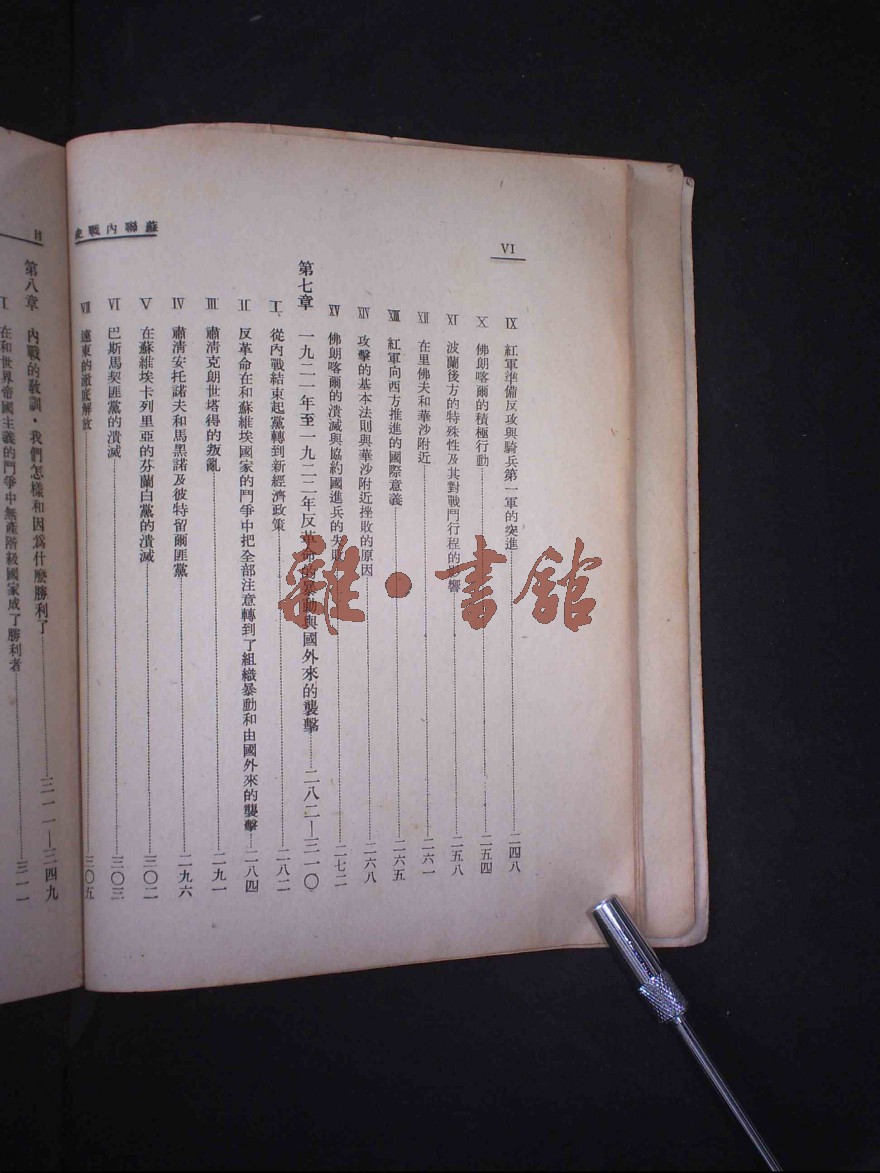 VI
蘇聯內戰史
IX 紅軍準備反攻與騎兵第一軍的突進 二四八
X 佛朗喀爾的積極行動 二五四
XI 波蘭後方的特殊性及其對戰鬥行程的影響 二五八
XII 在里佛夫和華沙附近 二六一
XIII 紅軍向西方推進的國際意義 二六五
XIV 攻擊的基本法則與華沙附近挫敗的原因 二六八
XV 佛朗喀爾的潰滅與協約國進兵的失敗 二七二
第七章 一九二一年至一九二二年反革命的暴動與國外來的襲擊 二八二—三一〇
I 從內戰結束起黨轉到新經濟政策 二八二
II 反革命在和蘇維埃國家的鬥爭中把全部注意轉到了組織暴動和由國外來的襲擊 二八四
III 肅清克朗世塔得的叛亂 二九一
IV 肅清安托諾夫和馬黑諾及彼特留爾匪黨 二九六
V 在蘇維埃卡列里亞的芬蘭白黨的潰滅 三〇二
VI 巴斯馬契匪黨的潰滅 三〇三
VII 遠東的澈底解放 三〇五
第八章 內戰的敎訓·我們怎樣和因爲什麼勝利了 三一一—三四九
I 在和世界帝國主義的鬥爭中無產階級國家成了勝利者 三一一
雜·書館